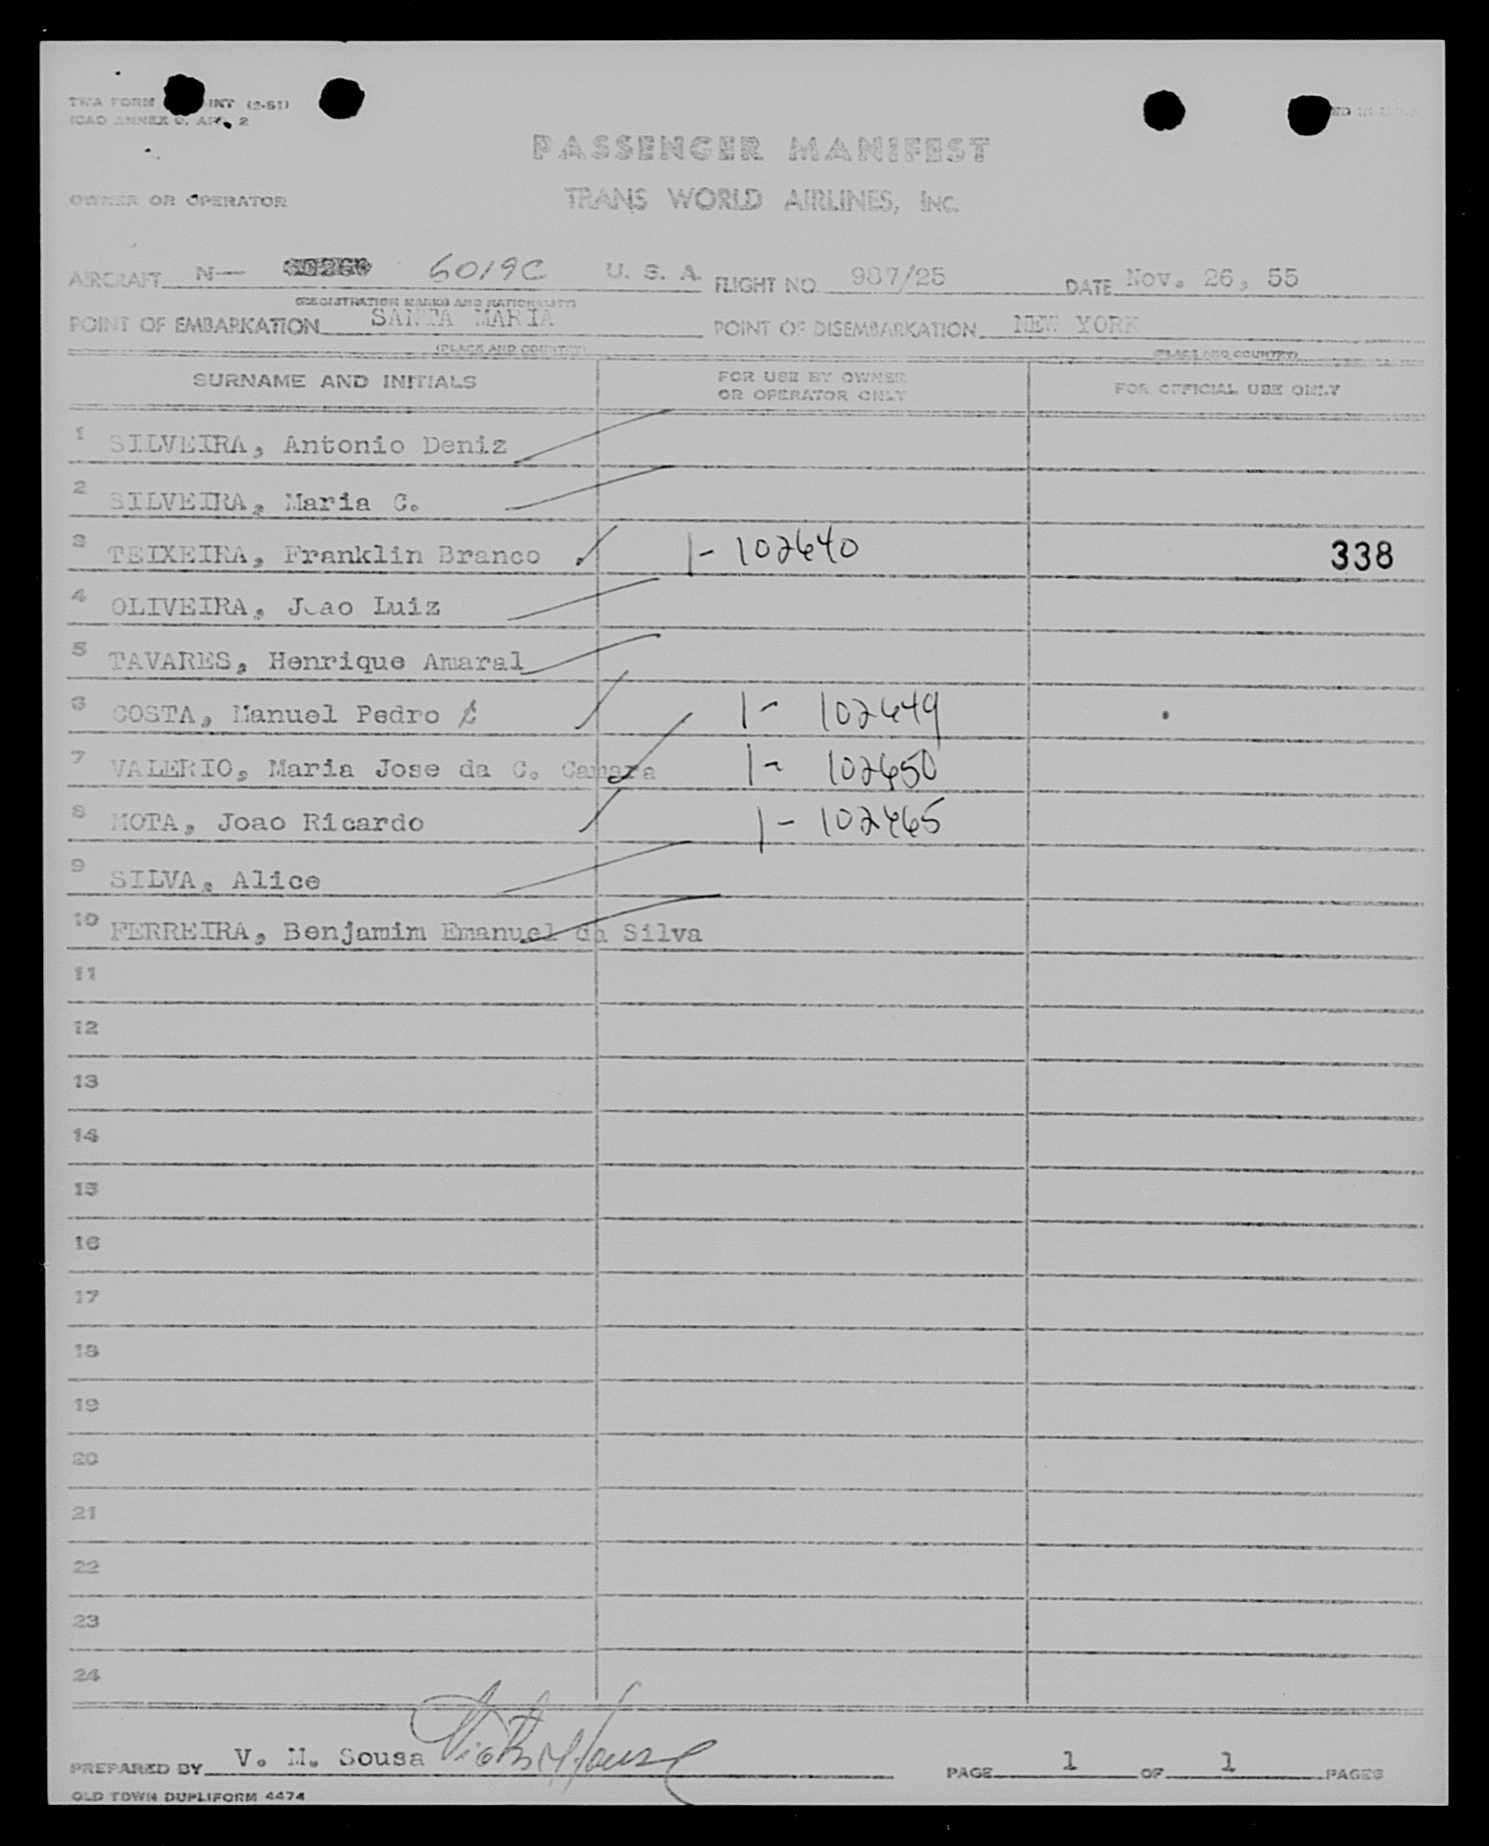 TWA FORM INT (2-51)
ICAO ANNEX 9. APP. 2
PASSENGER MANIFEST
OWNER OR OPERATOR TRANS WORLD AIRLINES, INC.
AIRCRAFT N— 6019C U. S. A. FLIGHT NO 987/25 DATE Nov. 26, 55
(REGISTRATION MARKS AND NATIONALITY)
POINT OF EMBARKATION SANTA MARIA POINT OF DISEMBARKATION NEW YORK
(PLACE AND COUNTRY) (PLACE AND COUNTRY)
SURNAME AND INITIALS FOR USE BY OWNER OR OPERATOR ONLY FOR OFFICIAL USE ONLY
1 SILVEIRA, Antonio Deniz
2 SILVEIRA, Maria C.
3 TEIXEIRA, Franklin Branco 1- 102640 338
4 OLIVEIRA, Joao Luiz
5 TAVARES, Henrique Amaral
6 COSTA, Manuel Pedro 1- 102649
7 VALERIO, Maria Jose da C. Camara 1- 102650
8 MOTA, Joao Ricardo 1- 102465
9 SILVA, Alice
10 FERREIRA, Benjamim Emanuel da Silva
11
12
13
14
15
16
17
18
19
20
21
22
23
24
PREPARED BY V. M. Sousa Victor M Sousa PAGE 1 OF 1 PAGES
OLD TOWN DUPLIFORM 4474